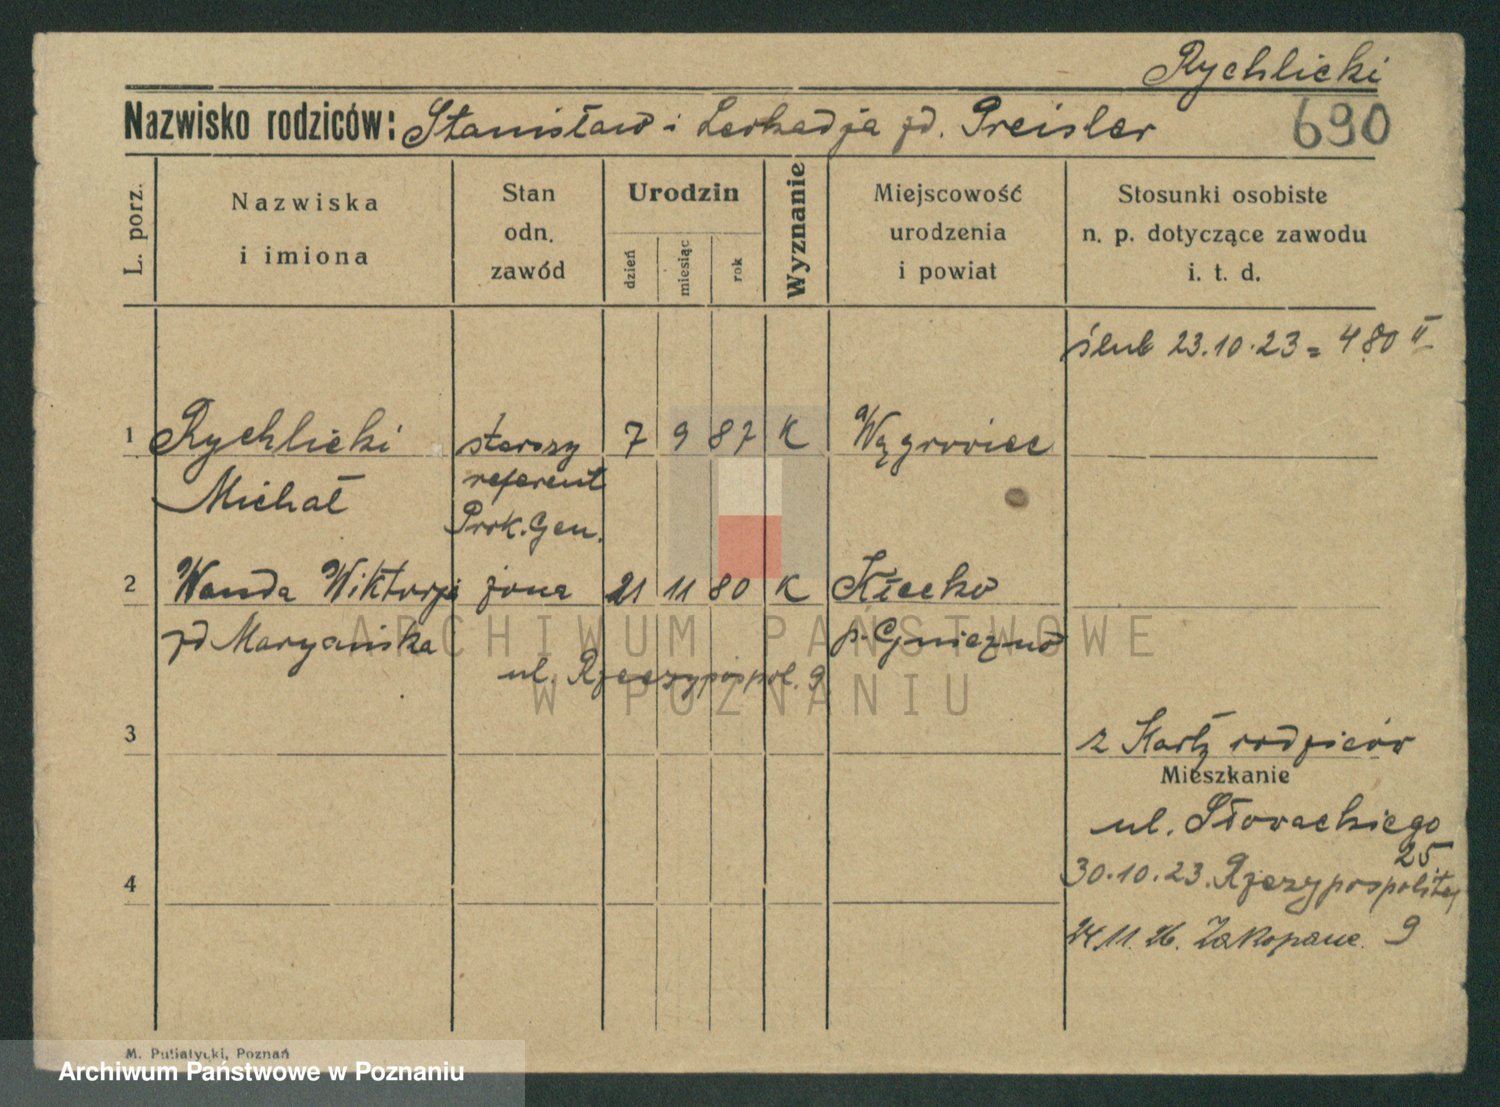 Rychlicki
Nazwisko rodziców: Stanisław i Leokadja zd. Preisler
690
L. porz.
Nazwiska
i imiona
Stan
odn.
zawód
Urodzin
dzień
miesiąc
rok
Wyznanie
Miejscowość
urodzenia
i powiat
Stosunki osobiste
n. p. dotyczące zawodu
i. t. d.
ślub 23.10.23 = 480 II
1 Rychlicki starszy 7 9 87 K Wągrowiec
Michał referent
Prok. Gen.
2 Wanda Wiktorja żona 21 11 80 K Kłecko
zd Maryańska p. Gniezno
ul. Rzeczypospol. 9
ARCHIWUM PAŃSTWOWE
W POZNANIU
3
z Karty rodziców
Mieszkanie
ul. Słowackiego
25
4
30.10.23. Rzezypospolitej
9
24.11.26. Zakopane
M. Putiatycki, Poznań
Archiwum Państwowe w Poznaniu